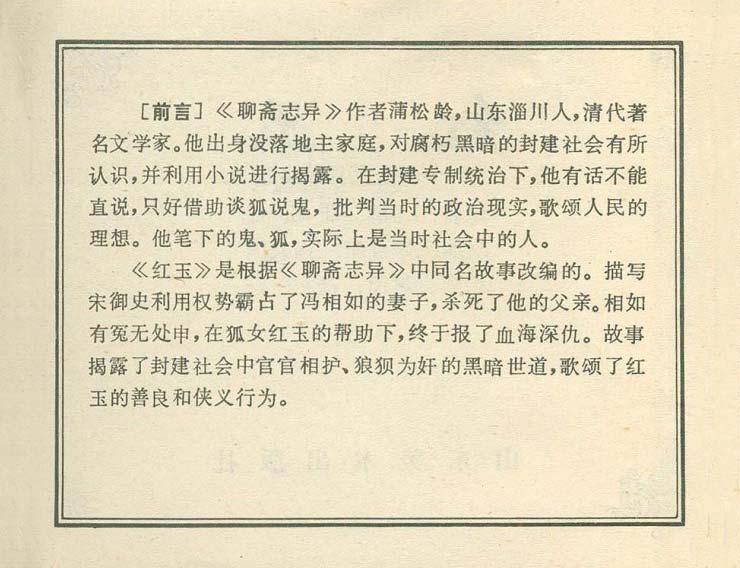 [前言]《聊斋志异》作者蒲松龄，山东淄川人，清代著
名文学家。他出身没落地主家庭，对腐朽黑暗的封建社会有所
认识，并利用小说进行揭露。在封建专制统治下，他有话不能
直说，只好借助谈狐说鬼，批判当时的政治现实，歌颂人民的
理想。他笔下的鬼、狐，实际上是当时社会中的人。
《红玉》是根据《聊斋志异》中同名故事改编的。描写
宋御史利用权势霸占了冯相如的妻子，杀死了他的父亲。相如
有冤无处申，在狐女红玉的帮助下，终于报了血海深仇。故事
揭露了封建社会中官官相护、狼狈为奸的黑暗世道，歌颂了红
玉的善良和侠义行为。